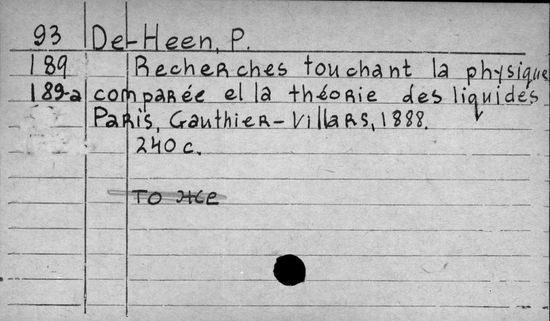 93 De-Heen, P.
189 Recherches touchant la physique
189-a comparée et la théorie des liquides
Paris, Gauthier-Villars, 1888.
240 c.
То же